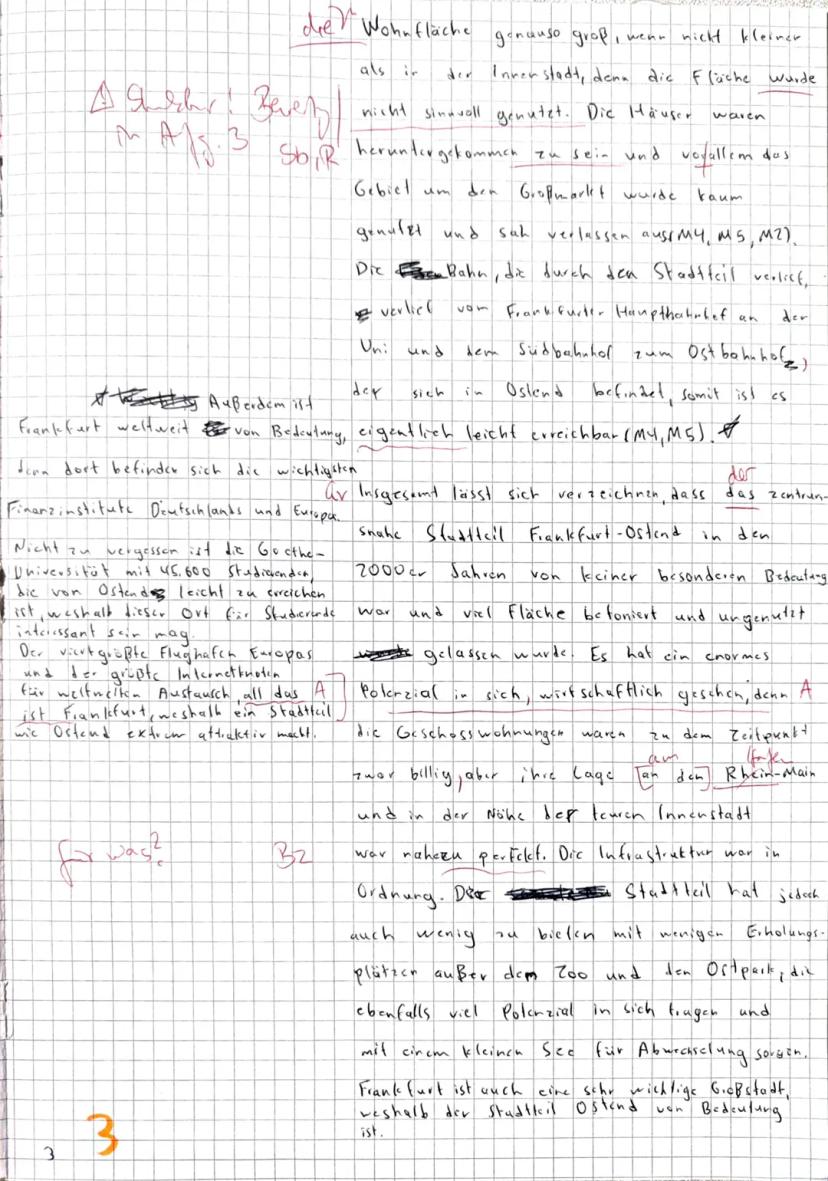 die Wohnfläche genauso groß, wenn nicht kleiner
als in der Innenstadt, denn die Fläche wurde
nicht sinnvoll genutzt. Die Häuser waren
heruntergekommen zu sein und vorallem das
Gebiet um den Großmarkt wurde kaum
genutzt und sah verlassen aus (M4, M5, M2).
Die Bahn, die durch den Stadtteil verlief,
verlief vom Frankfurter Hauptbahnhof an der
Uni und dem Südbahnhof zum Ostbahnhof,
der sich in Ostend befindet, somit ist es
eigentlich leicht erreichbar (M4, M5).
Insgesamt lässt sich verzeichnen, dass das zentrum-
snahe Stadtteil Frankfurt-Ostend in den
2000er Jahren von keiner besonderen Bedeutung
war und viel Fläche betoniert und ungenutzt
gelassen wurde. Es hat ein enormes
Potenzial in sich, wirtschaftlich gesehen, denn
die Geschosswohnungen waren zu dem Zeitpunkt
zwar billig, aber ihre Lage [an den] Rhein-Main
und in der Nähe der teuren Innenstadt
war nahezu perfekt. Die Infrastruktur war in
Ordnung. Der Stadtteil hat jedoch
auch wenig zu bieten mit wenigen Erholungs-
plätzen außer dem Zoo und den Ostpark, die
ebenfalls viel Potenzial in sich tragen und
mit einem kleinen See für Abwechselung sorgen.
Frankfurt ist auch eine sehr wichtige Großstadt,
weshalb der Stadtteil Ostend von Bedeutung
ist.
Außerdem ist
Frankfurt weltweit von Bedeutung,
denn dort befinden sich die wichtigsten
Finanzinstitute Deutschlands und Europa.
Nicht zu vergessen ist die Goethe-
Universität mit 45.600 Studierenden,
die von Ostend leicht zu erreichen
ist, weshalb dieser Ort für Studierende
interessant sein mag.
Der viertgrößte Flughafen Europas
und der größte Internetknoten
für weltweiten Austausch, all das
ist Frankfurt, weshalb ein Stadtteil
wie Ostend extrem attraktiv macht.
r
in Afg. 3
Sb, R
der
Gr
A
A
am
für was?
Bz
3
3